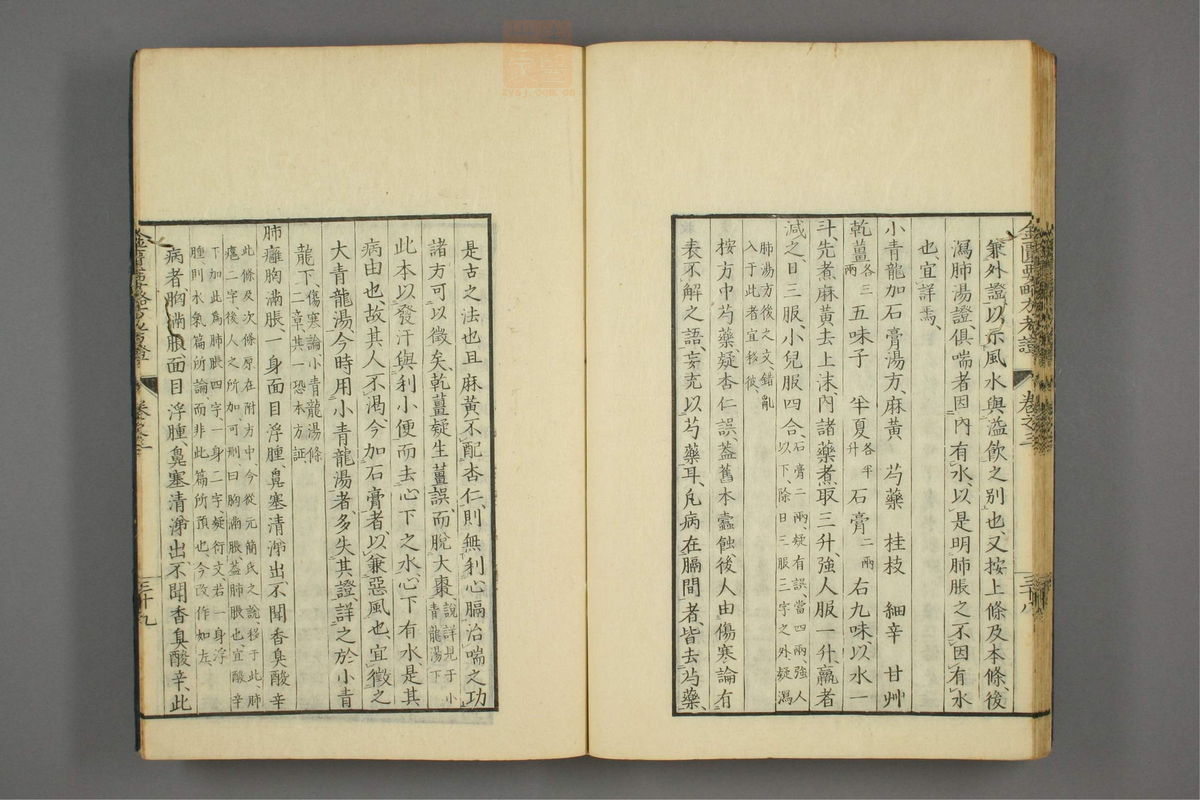 兼外證以示風水與溢飲之別也、又按上條及本條、後
瀉肺湯證、俱喘者因內有水、以是明肺脹之不因有水
也、宜詳焉、
小青龍加石膏湯方、麻黃 芍藥 桂枝 細辛 甘艸
乾薑各三兩 五味子 半夏各半升 石膏二兩 右九味、以水一
斗先煮麻黃去上沫、內諸藥、煮取三升、強人服一升、羸者
減之、日三服、小兒服四合、石膏二兩、疑有誤、當四兩、強人以下、除日三服三字之外、疑瀉
肺湯方後之文、錯亂入于此者、宜移彼、
按方中芍藥疑杏仁誤、蓋舊本蠹蝕、後人由傷寒論有
表不解之語、妄充以芍藥耳、凡病在膈間者、皆去芍藥、
卷之三
三十八
是古之法也、且麻黃不配杏仁、則無利心膈治喘之功、
諸方可以徵矣、乾薑疑生薑誤、而脫大棗、說詳見于小青龍湯下
此本以發汗與利小便而去心下之水、心下有水是其
病由也、故其人不渴、今加石膏者、以兼惡風也、宜徵之
大青龍湯、今時用小青龍湯者、多失其證、詳之於小青
龍下、傷寒論小青龍湯條二章、其一恐本方証
肺癰胸滿脹、一身面目浮腫、鼻塞清涕出、不聞香臭酸辛
此條及次條原在附方中、今從元簡氏之說、移于此、肺
癰二字後人之所加、可刪、曰胸滿脹、蓋肺脹也、宜酸辛
下加此為肺脹四字、一身二字、疑衍文、若一身浮
腫、則水氣篇所論、而非此篇所預也、今改作如左、
病者、胸滿脹、面目浮腫、鼻塞清涕出、不聞香臭酸辛、此
三十九